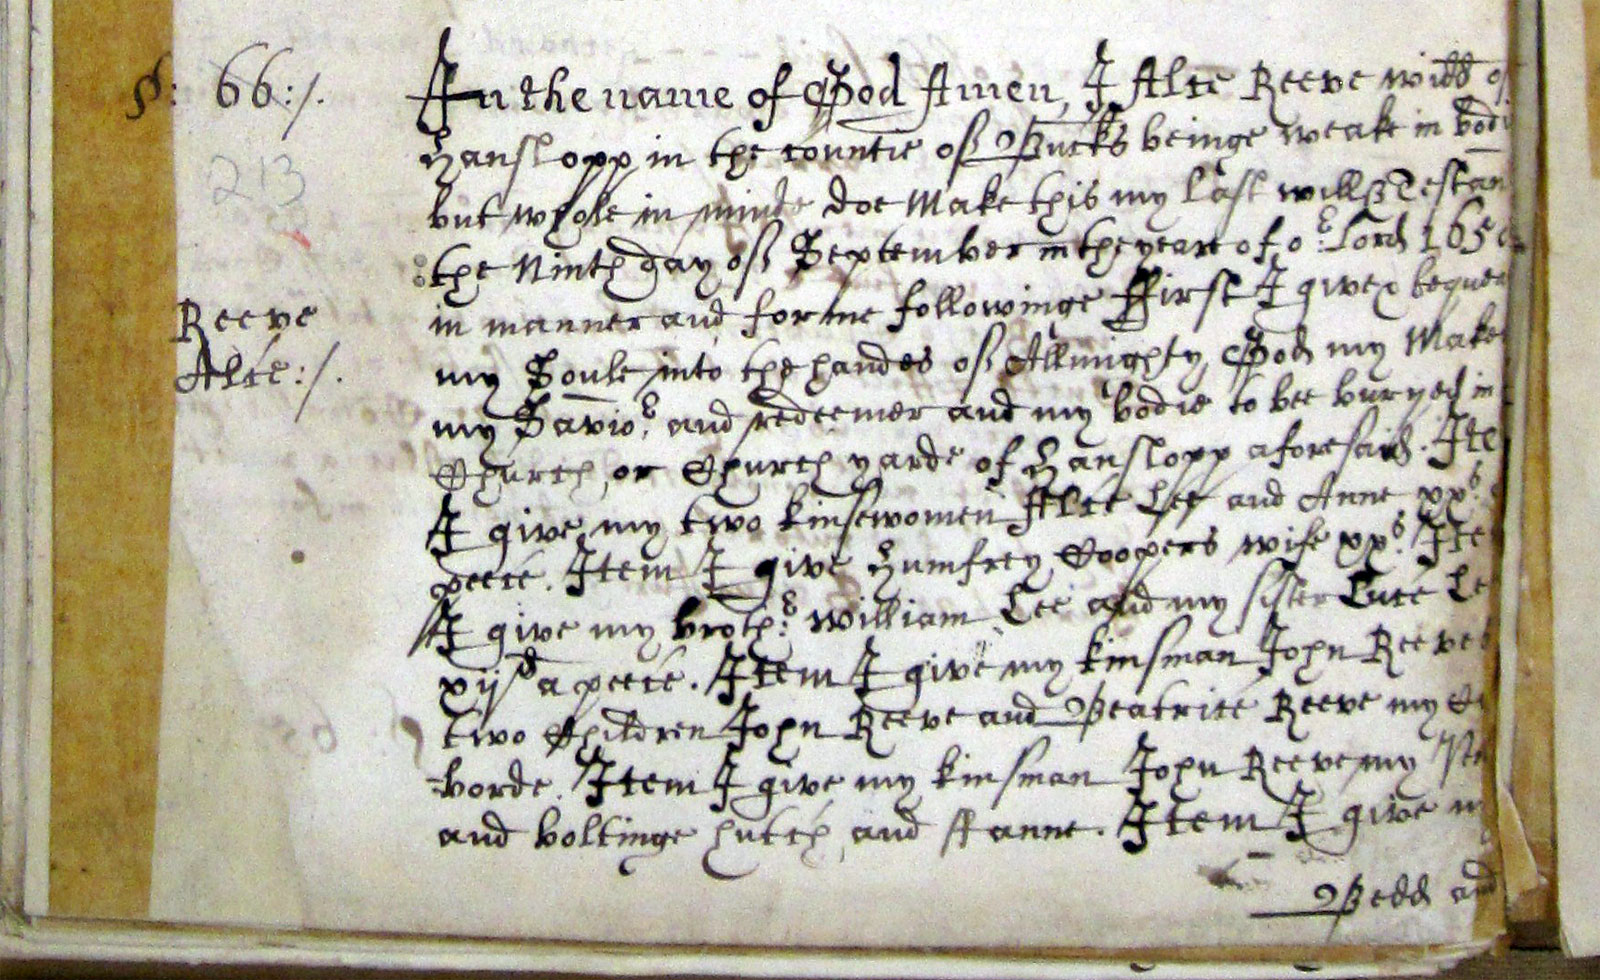 P: 66:/.
213
Reeve
Alce:/.
In the name of God Amen, I Alce Reeve widd of
Hanslopp in the countie of Bucks beinge weake in bodi
but whole in minde doe Make this my last will & Testam
the Ninth day of September in the yeare of or Lord 165
in manner and forme followinge ffirst I give & bequea
my Soule into the handes of Allmighty God my Make
my Savior, and redeemer and my bodie to bee buryed in
Church, or Church yarde of Hanslopp aforesaid. Ite
I give my two kinsewomen Alce Lee and Anne xxs
peece. Item I give Humfrey Coopers wife xxs. Ite
I give my brother William Lee and my sister Luce Le
xijd a peece. Item I give my kinsman John Reeves
two Children John Reeve and Beatrice Reeve my
borde. Item I give my kinsman John Reeve my
and boltinge hutch, and ffanne. Item I give m
Bedd and